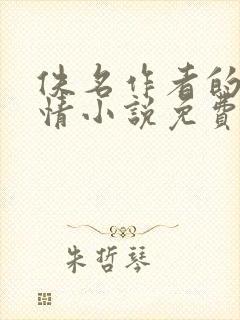 佚名作者的
情小說免費
朱哲琴